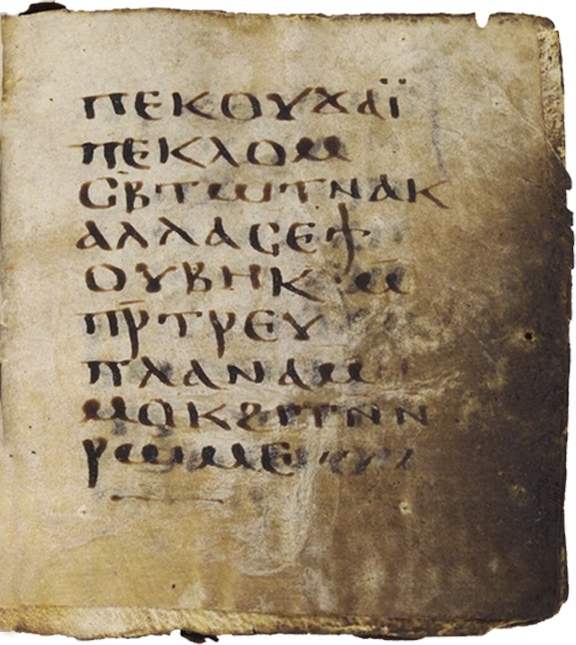 ⲡⲉⲕⲟⲩϫⲁⲓ̈
ⲡⲉⲕⲗⲟⲙ
ⲥⲃ̅ⲧⲱⲧⲛⲁⲕ
ⲁⲗⲗⲁⲥⲉϯ
ⲟⲩⲃⲏⲕ·ⲙ̅
ⲡⲣ̅ⲧⲣⲉⲩ
ⲡⲗⲁⲛⲁⲙ
ⲙⲟⲕϩⲓⲧⲛⲛ
ⲣⲱⲙⲉ